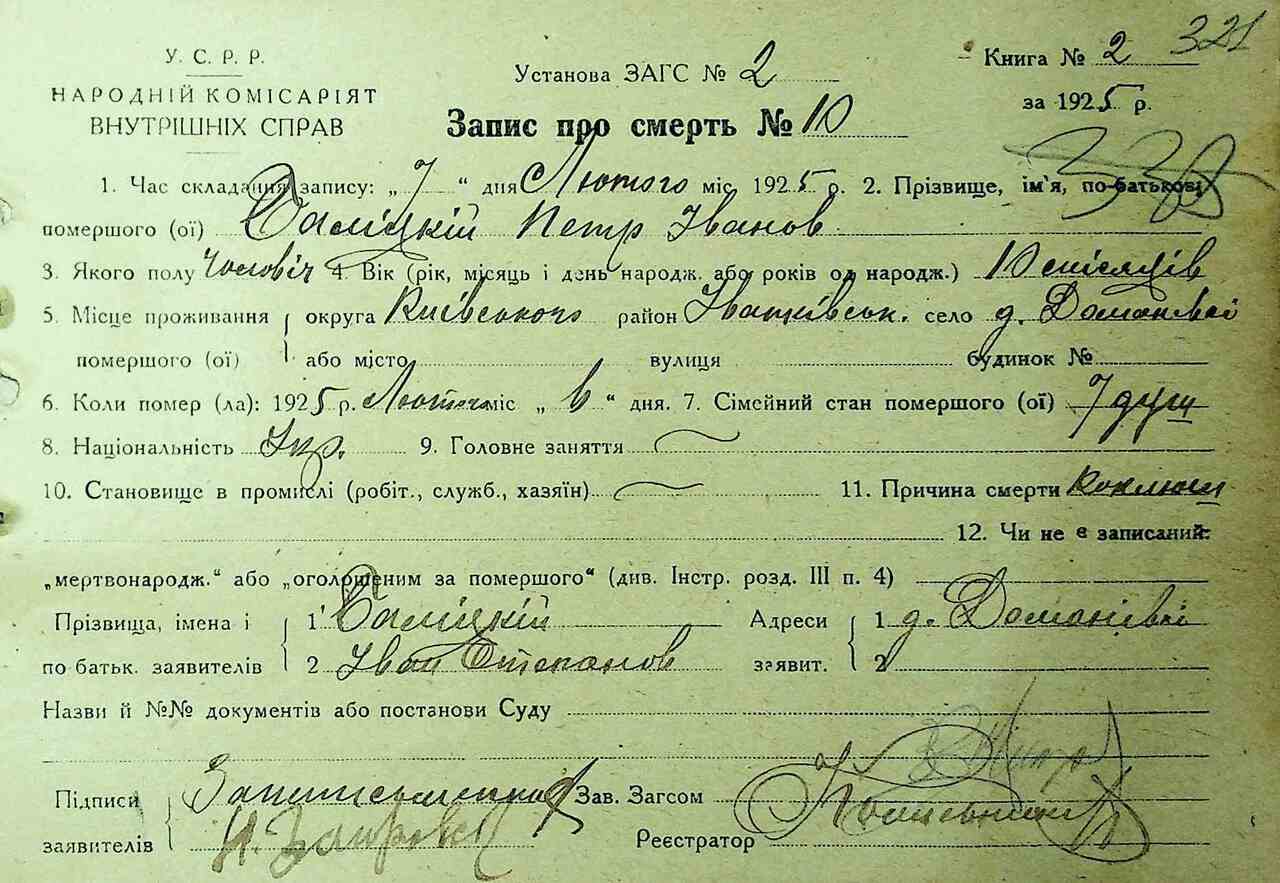 У. С. Р. Р.
НАРОДНІЙ КОМІСАРІЯТ
ВНУТРІШНІХ СПРАВ
Установа ЗАГС № 2
Запис про смерть № 10
Книга № 2 321
за 1925 р.
338
1. Час складання запису: „ 7 “ дня Лютого міс 1925 р. 2. Прізвище, ім'я, по-батькові
помершого (ої) Баліцкій Петр Іванов
3. Якого полу Чоловіч 4. Вік (рік, місяць і день народж. або років од народж.) 10 місяців
5. Місце проживання округа Київського район Іванківськ. село д. Доманівкі
помершого (ої) або місто вулиця будинок №
6. Коли помер (ла): 1925 р. Лютого міс „ 6 “ дня. 7. Сімейний стан помершого (ої) 7 душ
8. Національність Укр. 9. Головне заняття
10. Становище в промислі (робіт., служб., хазяїн) 11. Причина смерти Коклюш
12. Чи не є записаний:
„мертвонародж.“ або „оголошеним за помершого“ (див. Інстр. розд. III п. 4)
Прізвища, імена і 1 Баліцкій Адреси 1 д. Доманівкі
по батьк. заявителів 2 Іван Степанов заявит. 2
Назви й №№ документів або постанови Суду
Підписи Зав. Загсом
заявителів Реєстратор